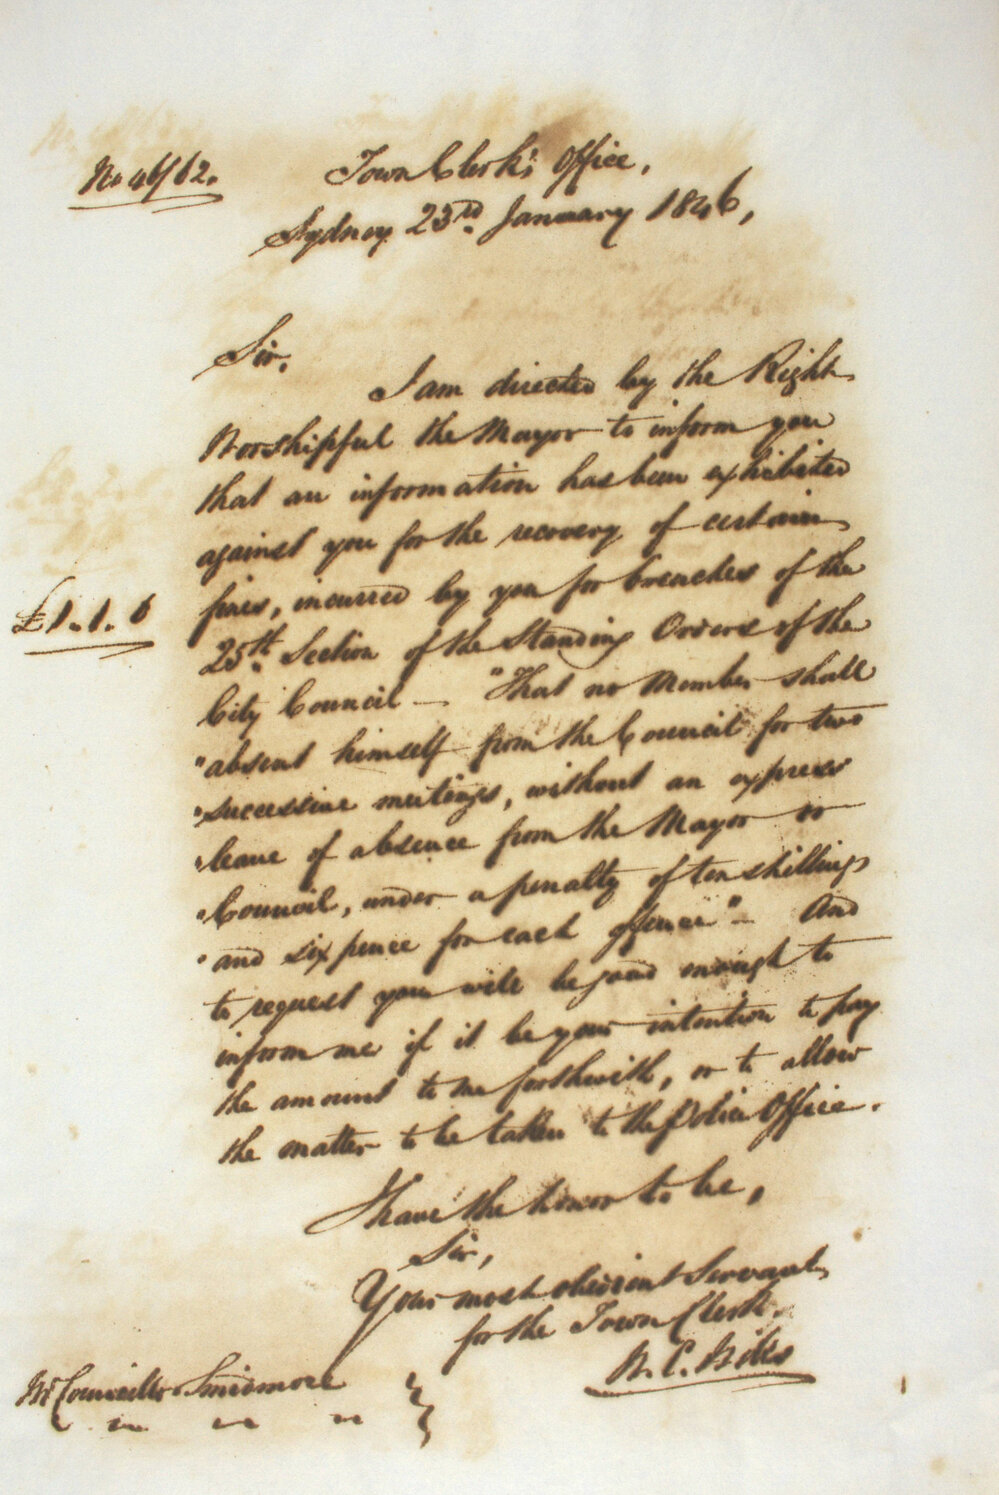 No 46/62.
Town Clerk's Office,
Sydney 23rd January 1846,
Sir,
I am directed by the Right
Worshipful the Mayor to inform you
that an information has been exhibited
against you for the recovery of certain
fines, incurred by you for breaches of the
£1.1.0
25th Section of the Standing Orders of the
City Council — "That no Member shall
"absent himself from the Council for two
"successive meetings, without an express
"leave of absence from the Mayor or
"Council, under a penalty of ten shillings
"and six pence for each offence" — And
to request you will be good enough to
inform me if it be your intention to pay
the amount to me forthwith, or to allow
the matter to be taken to the Police Office.
I have the honor to be,
Sir,
Your most obedient Servant,
for the Town Clerk.
Mr Councillor Smidmore